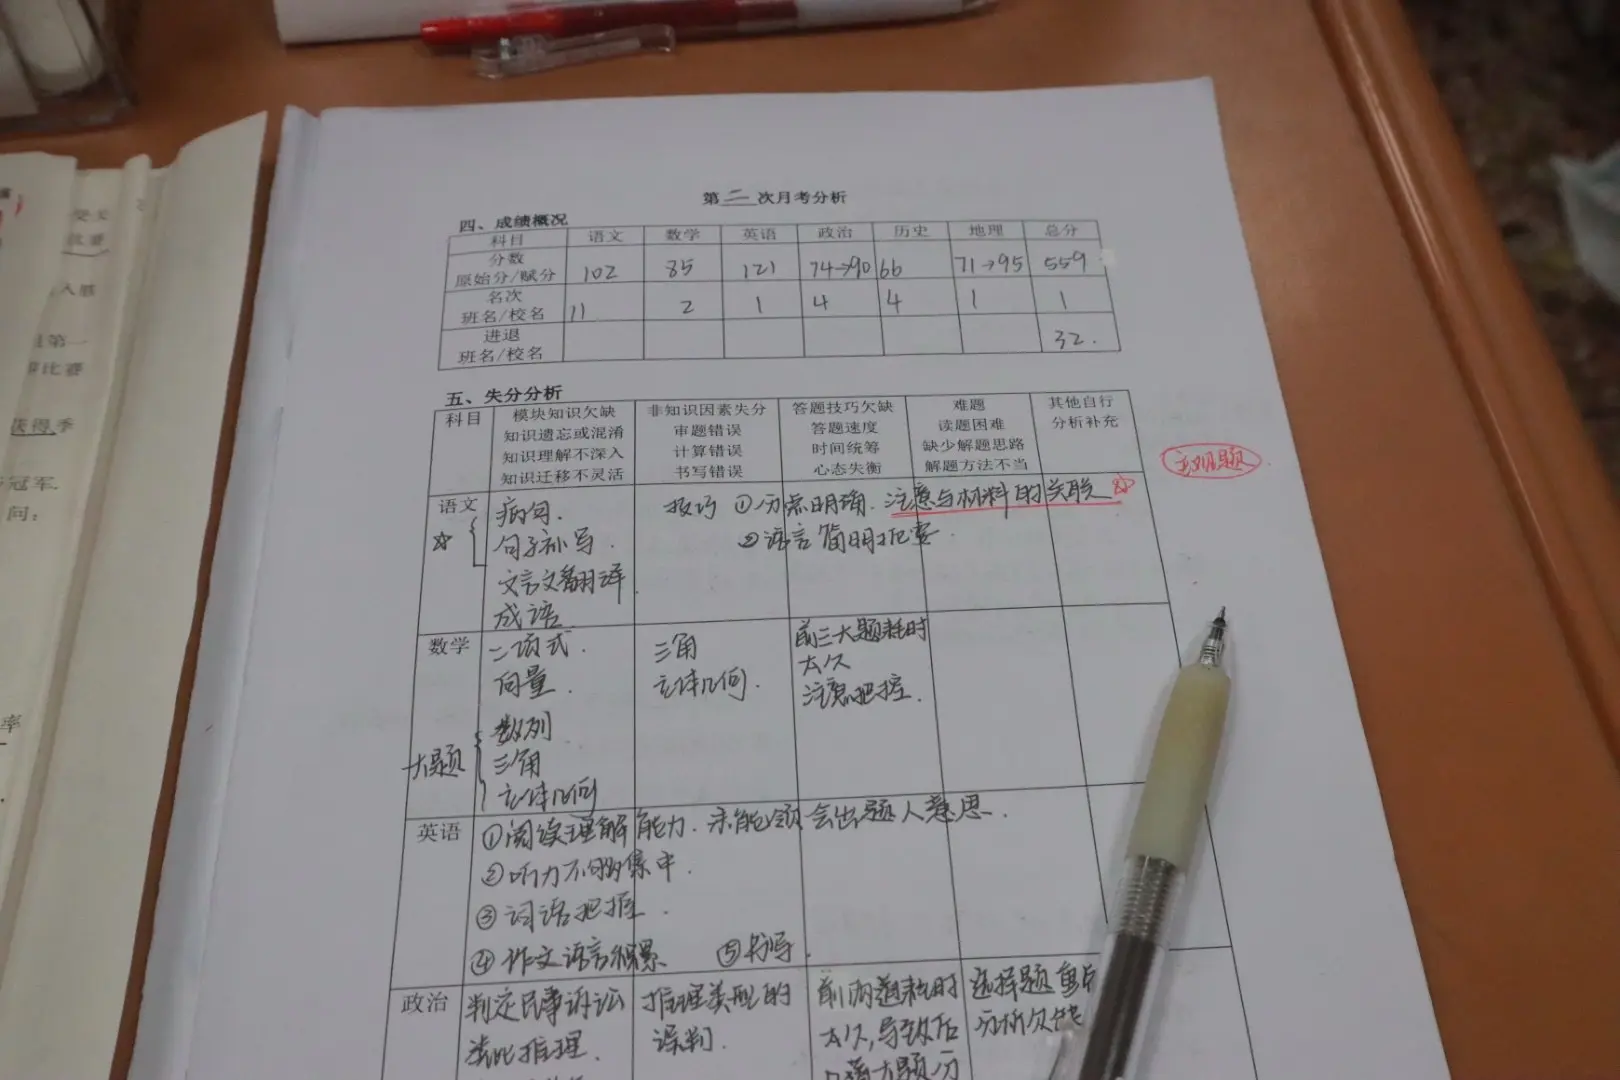 第二次月考分析
四、成绩概况
科目 语文 数学 英语 政治 历史 地理 总分
分数
原始分/赋分 102 85 121 74→90 66 71→95 559
名次
班名/校名 11 2 1 4 4 1 1
进退
班名/校名 32.
五、失分分析
科目 模块知识欠缺 非知识因素失分 答题技巧欠缺 难题 其他自行
知识遗忘或混淆 审题错误 答题速度 读题困难 分析补充
知识理解不深入 计算错误 时间统筹 缺少解题思路
知识迁移不灵活 书写错误 心态失衡 解题方法不当
主观题
语文 病句. 技巧 ①分点明确. 注意与材料的关联☆
☆ 句子补写. ②语言简明扼要.
文言文翻译.
成语.
数学 二项式. 三角 前三大题耗时
向量. 立体几何. 太久
注意把控.
数列
大题 三角
立体几何
英语 ①阅读理解能力. 未能领会出题人意思.
②听力不够集中.
③词语把握.
④作文语言积累 ⑤书写.
政治 判定民事诉讼 推理类型的 前两道耗时 选择题重点
类比推理. 误判. 太久,导致后 分析欠缺
大题分
受文
入感
第一
比赛
获得季
冠军.
问:
率